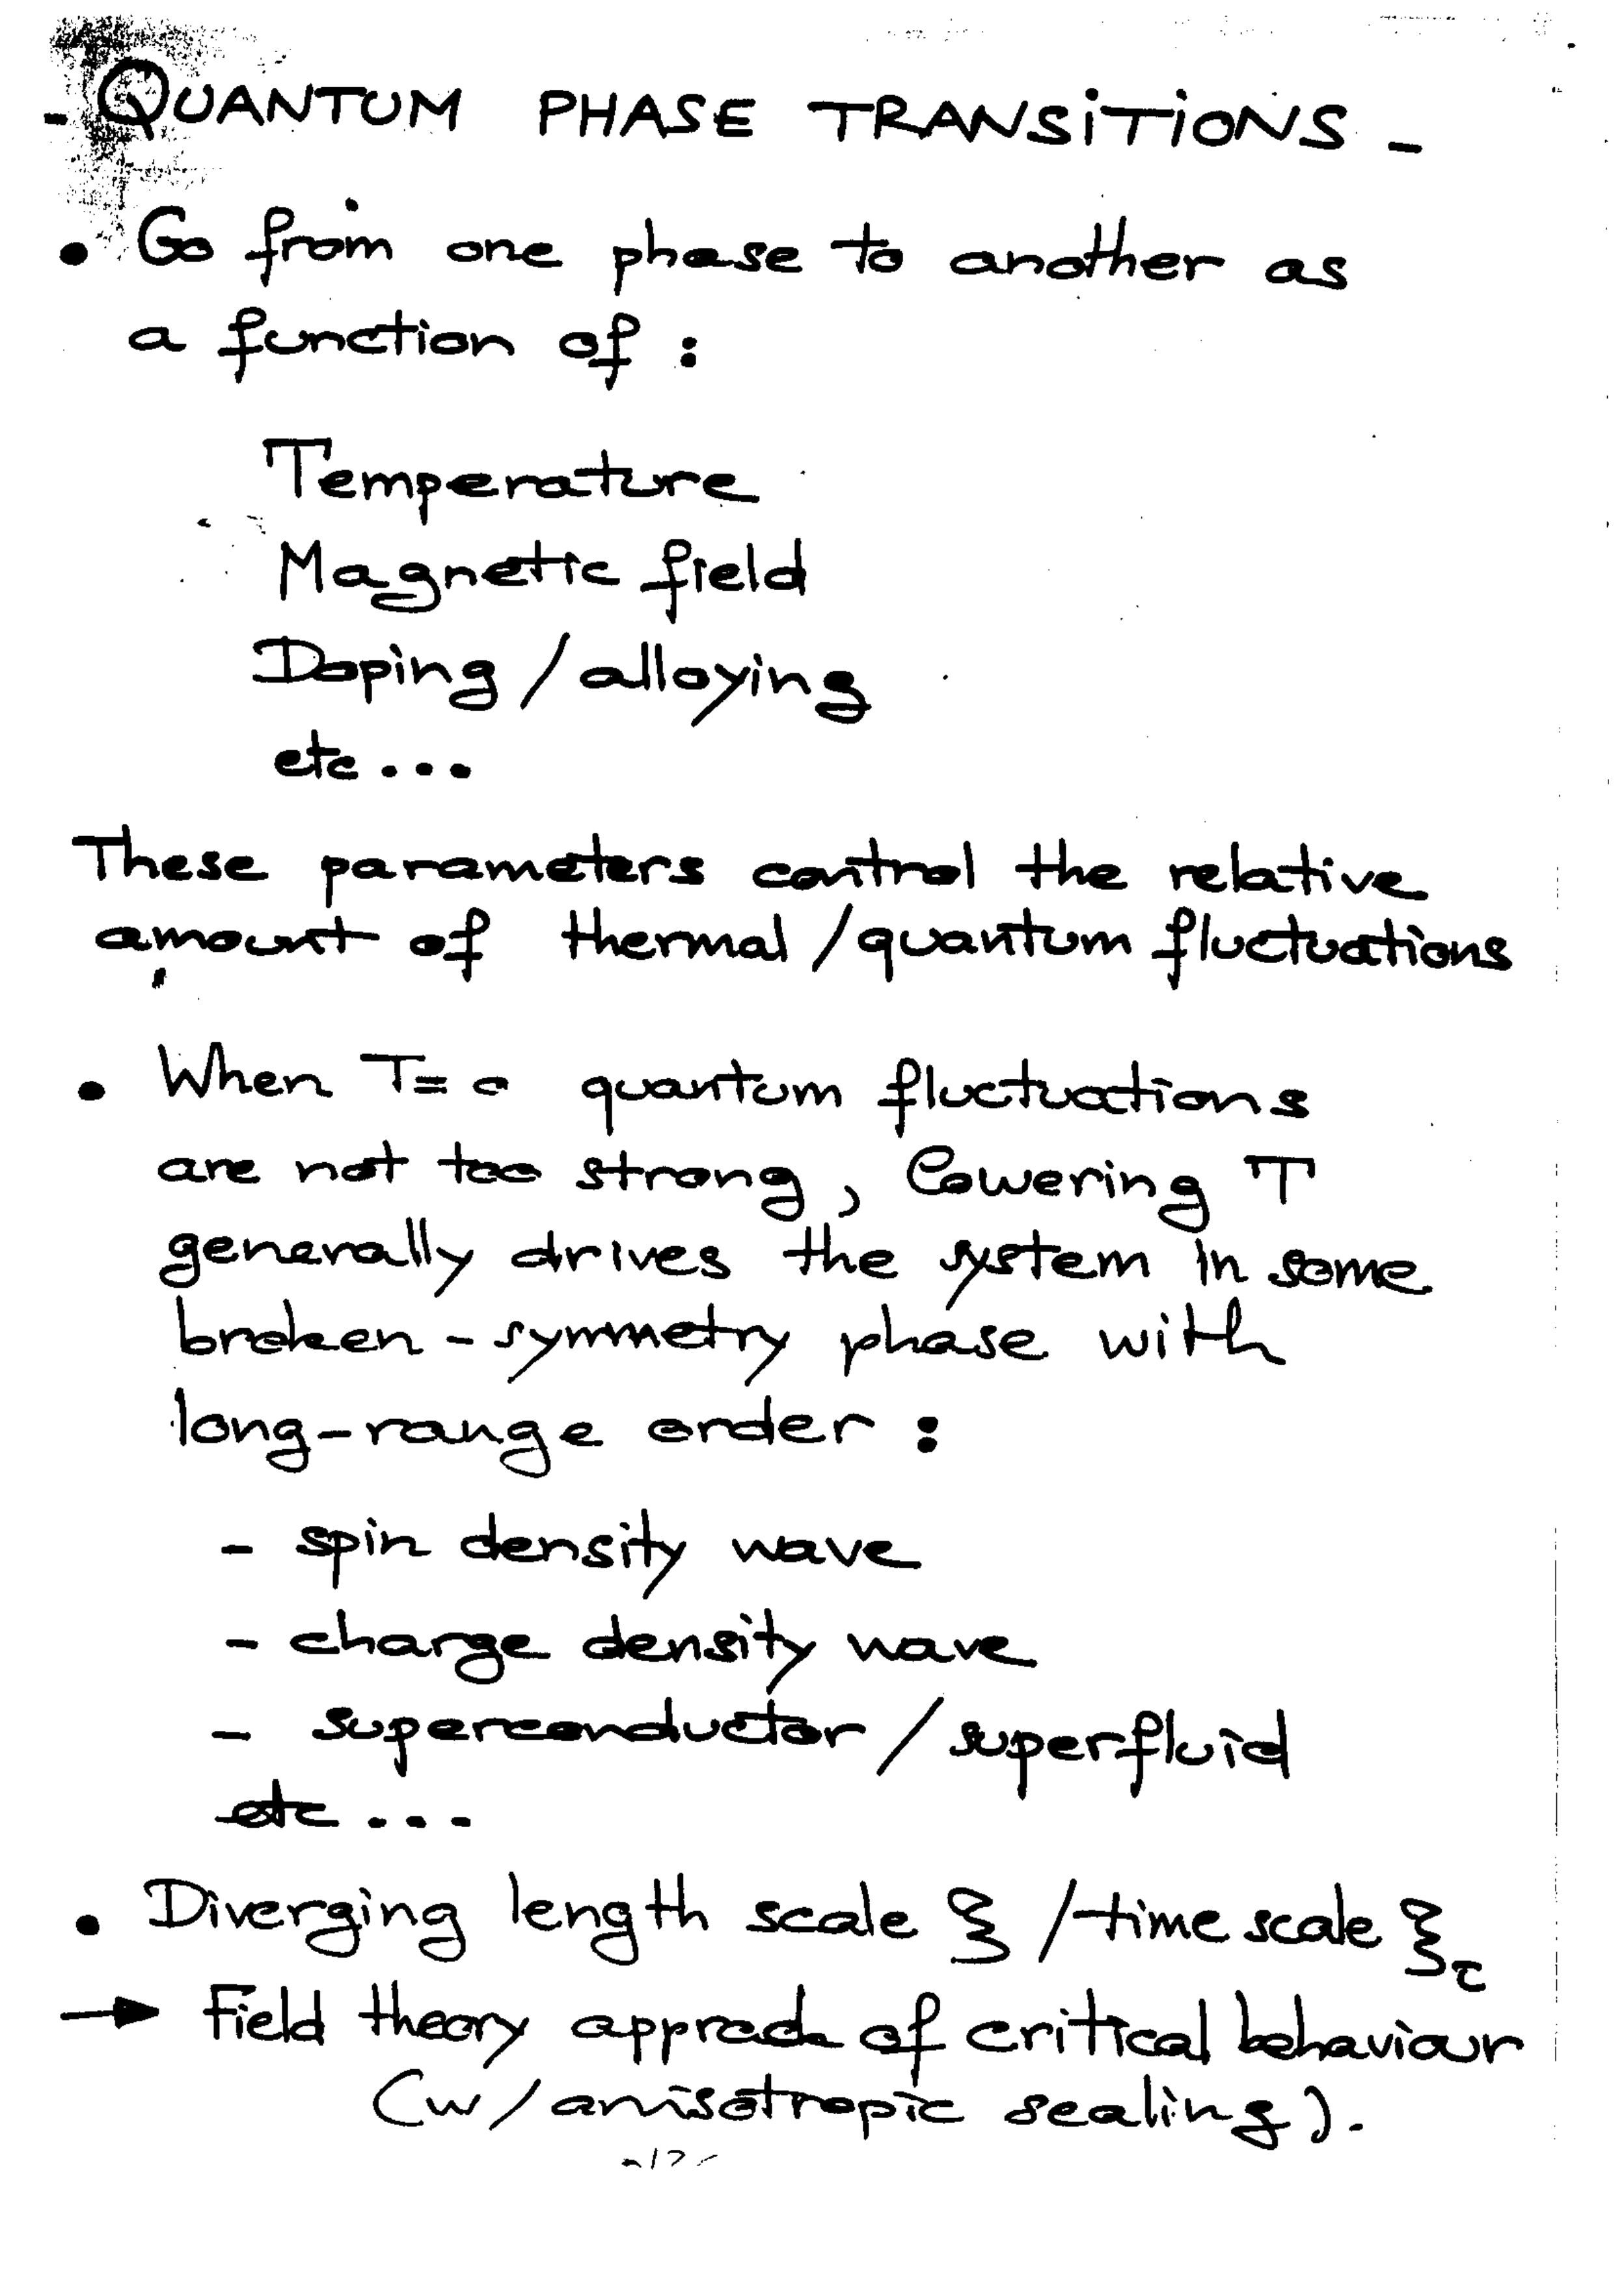 - QUANTUM PHASE TRANSITIONS -
• Go from one phase to another as
a function of :
Temperature
Magnetic field
Doping / alloying
etc...
These parameters control the relative
amount of thermal / quantum fluctuations
• When T=0 quantum fluctuations
are not too strong, lowering T
generally drives the system in some
broken-symmetry phase with
long-range order :
- spin density wave
- charge density wave
- superconductor / superfluid
etc...
• Diverging length scale ξ / time scale ξ_τ
→ Field theory approach of critical behaviour
(w/ anisotropic scaling).